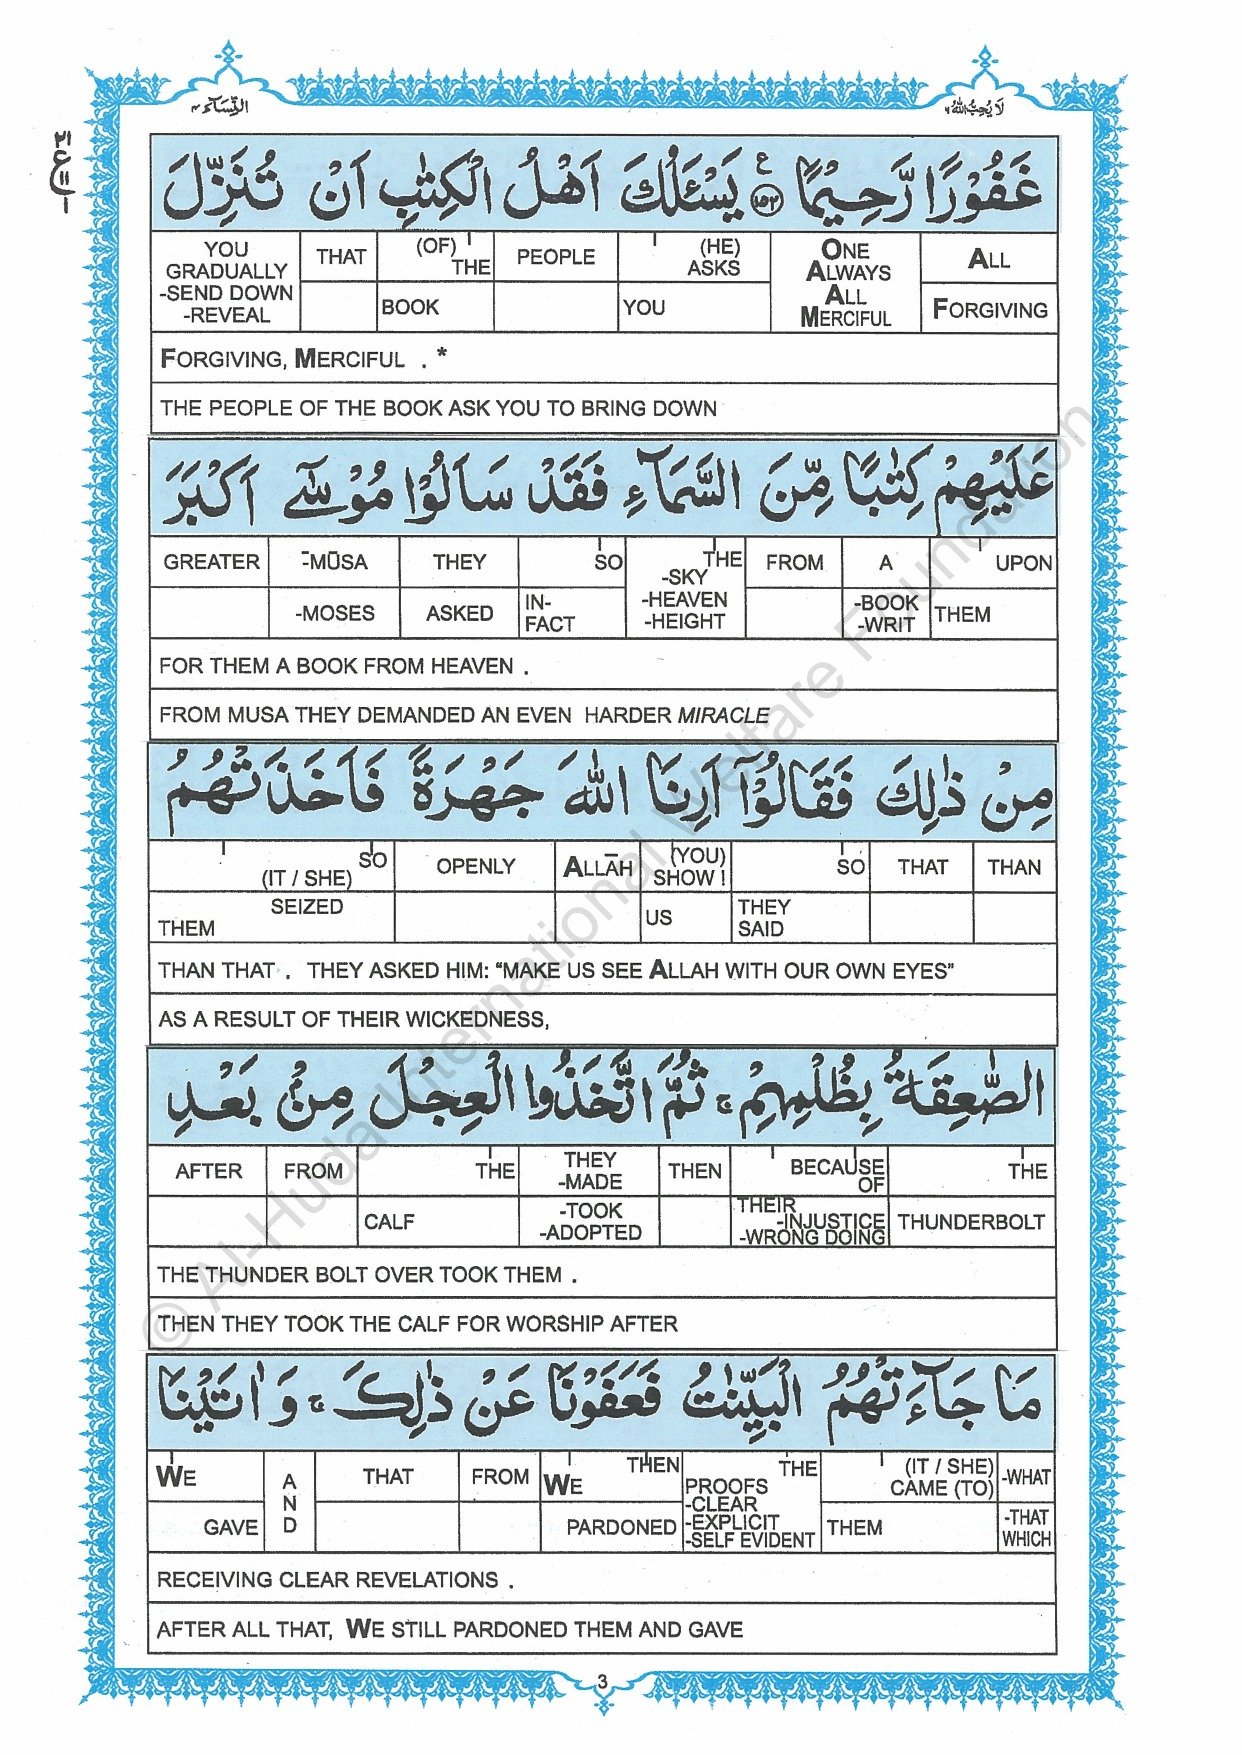 النِّسَآء ٤
لَا يُحِبُّ اللهُ ٦
غَفُوْرًا رَّحِيْمًا ۧ ﴿١٥٢﴾ يَسْـَٔلُكَ اَهْلُ الْكِتٰبِ اَنْ تُنَزِّلَ
YOU GRADUALLY -SEND DOWN -REVEAL | THAT | (OF) THE BOOK | PEOPLE | (HE) ASKS YOU | ONE ALWAYS ALL MERCIFUL | ALL FORGIVING
FORGIVING, MERCIFUL . *
THE PEOPLE OF THE BOOK ASK YOU TO BRING DOWN
عَلَيْهِمْ كِتٰبًا مِّنَ السَّمَآءِ فَقَدْ سَاَلُوْا مُوْسٰٓى اَكْبَرَ
GREATER | -MŪSA -MOSES | THEY ASKED | SO IN-FACT | THE -SKY -HEAVEN -HEIGHT | FROM | A -BOOK -WRIT | UPON THEM
FOR THEM A BOOK FROM HEAVEN .
FROM MUSA THEY DEMANDED AN EVEN HARDER MIRACLE
مِنْ ذٰلِكَ فَقَالُوْٓا اَرِنَا اللّٰهَ جَهْرَةً فَاَخَذَتْهُمُ
SO (IT / SHE) SEIZED THEM | OPENLY | ALLĀH | (YOU) SHOW ! US | SO THEY SAID | THAT | THAN
THAN THAT . THEY ASKED HIM: “MAKE US SEE ALLAH WITH OUR OWN EYES”
AS A RESULT OF THEIR WICKEDNESS,
الصّٰعِقَةُ بِظُلْمِهِمْ ۚ ثُمَّ اتَّخَذُوا الْعِجْلَ مِنْۢ بَعْدِ
AFTER | FROM | THE CALF | THEY -MADE -TOOK -ADOPTED | THEN | BECAUSE OF THEIR -INJUSTICE -WRONG DOING | THE THUNDERBOLT
THE THUNDER BOLT OVER TOOK THEM .
THEN THEY TOOK THE CALF FOR WORSHIP AFTER
مَا جَآءَتْهُمُ الْبَيِّنٰتُ فَعَفَوْنَا عَنْ ذٰلِكَ ۚ وَاٰتَيْنَا
WE GAVE | AND | THAT | FROM | THEN WE PARDONED | THE PROOFS -CLEAR -EXPLICIT -SELF EVIDENT | (IT / SHE) CAME (TO) THEM | -WHAT -THAT WHICH
RECEIVING CLEAR REVELATIONS .
AFTER ALL THAT, WE STILL PARDONED THEM AND GAVE
3
© Al-Huda International Welfare Foundation